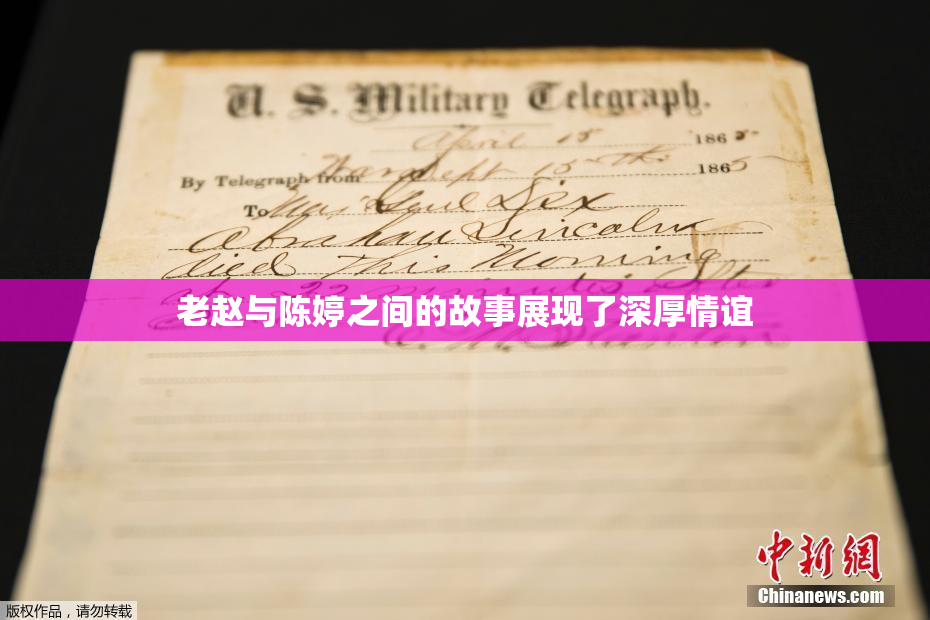 U. S. Military Telegraph.
April 15 1865.
By Telegraph from War Dept 15th 1865
To Maj Genl Dix
Abraham Lincoln
died This Morning
at 22 minutes after
老赵与陈婷之间的故事展现了深厚情谊
E. M. Stanton
中新網
Chinanews.com
版权作品，请勿转载